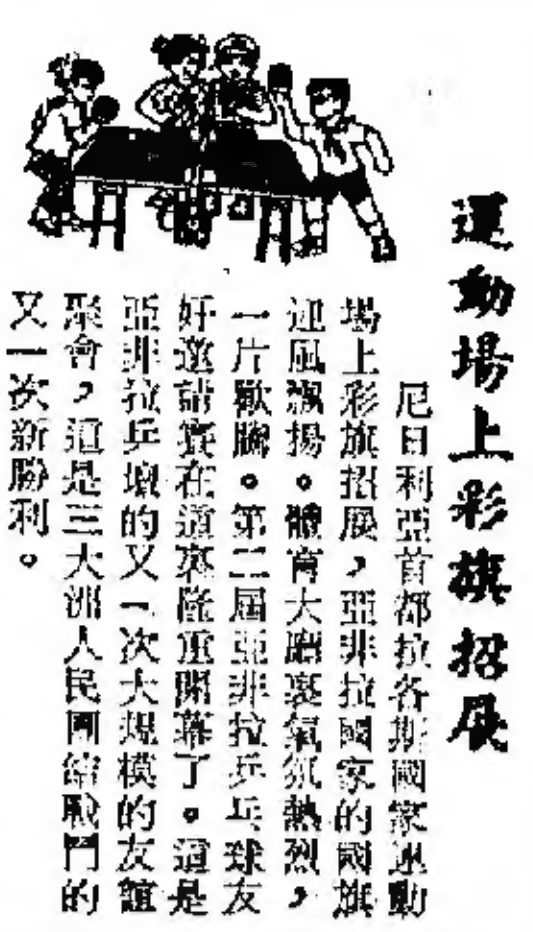 運動場上彩旗招展
尼日利亞首都拉各斯國家運動
場上彩旗招展，亞非拉國家的國旗
迎風飄揚。體育大廳裏氣氛熱烈，
一片歡騰。第二屆亞非拉乒乓球友
好邀請賽在這裏隆重開幕了。這是
亞非拉乒壇的又一次大規模的友誼
聚會，這是三大洲人民團結戰鬥的
又一次新勝利。